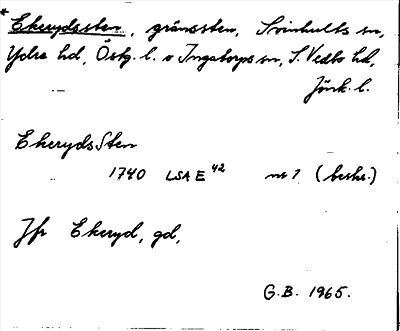 * Ekerydssten, gränssten, Svinhults sn,
Ydre hd, Östg. l. o Ingatorps sn, S. Vedbo hd,
Jönk. l.
EkerydsSten
1740 LSA E 42 nr 1 (beskr.)
Jfr Ekeryd, gd,
G.B. 1965.